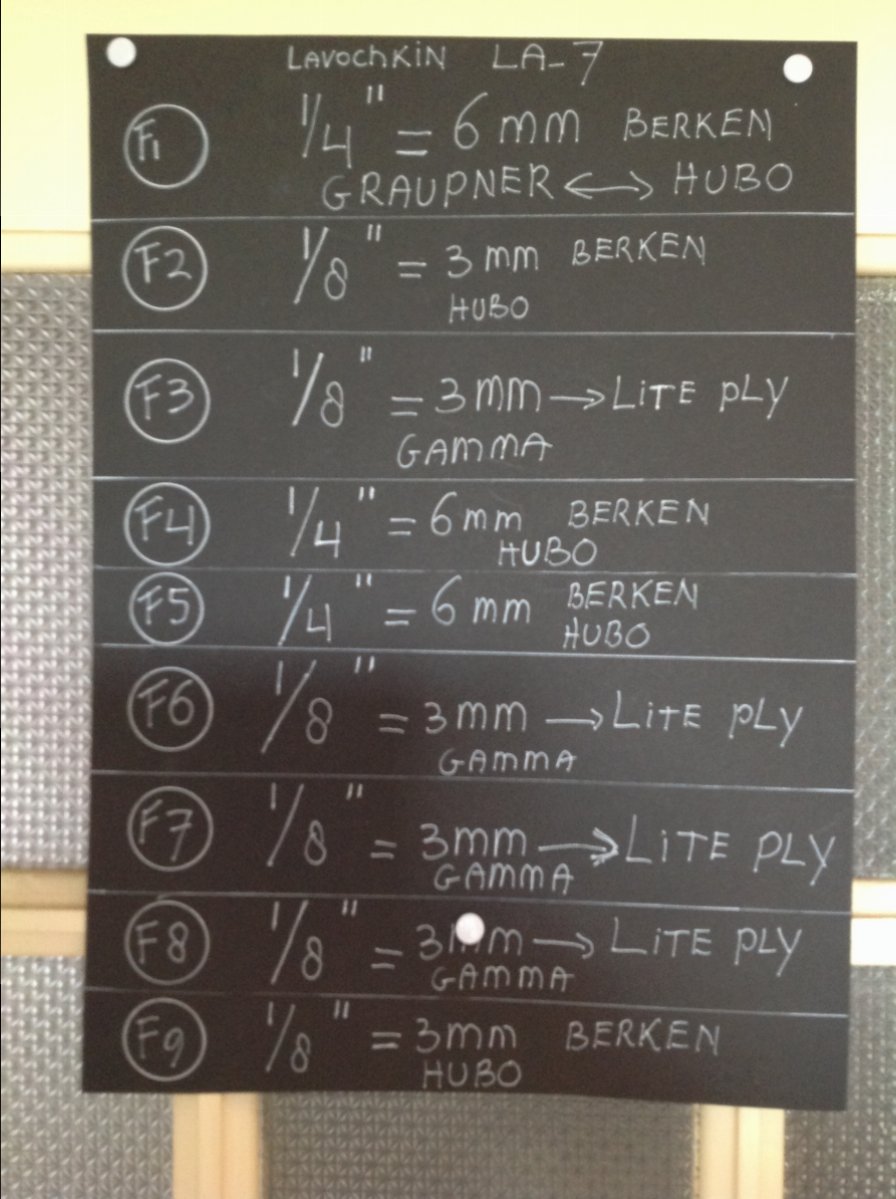 LAVOCHKIN LA-7
F1 1/4" = 6 mm BERKEN
GRAUPNER <-> HUBO
F2 1/8" = 3 mm BERKEN
HUBO
F3 1/8" = 3 mm → LiTE PLY
GAMMA
F4 1/4" = 6 mm BERKEN
HUBO
F5 1/4" = 6 mm BERKEN
HUBO
F6 1/8" = 3 mm → LiTE PLY
GAMMA
F7 1/8" = 3 mm → LiTE PLY
GAMMA
F8 1/8" = 3 mm → LiTE PLY
GAMMA
F9 1/8" = 3 mm BERKEN
HUBO